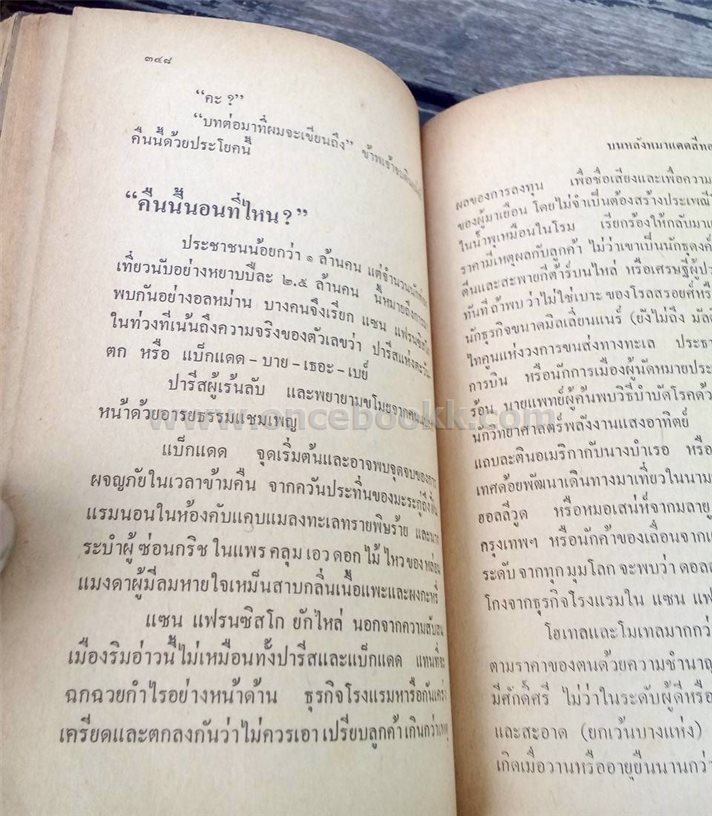 ๓๔๘
“คะ ?”
“บทต่อมาที่ผมจะเขียนถึง” ข้าพเจ้า
คืนนี้ด้วยประโยคนี้
“คืนนี้นอนที่ไหน ?”
ประชาชนน้อยกว่า ๑ ล้านคน แต่จำนวน
เที่ยวนับอย่างหยาบปีละ ๒.๕ ล้านคน นี้หมายถึง
พบกันอย่างอลหม่าน บางคนจึงเรียก แซน แฟรนซิสโก
ในท่วงที่เน้นถึงความจริงของตัวเลขว่า ปารีสแห่งตะวัน
ตก หรือ แบ็กแดด – บาย – เธอะ – เบย์
ปารีสผู้เร้นลับ และพยายามขโมยจาก
หน้าด้วยอารยธรรมแชมเพญ
www.oncebookk.com
แบ็กแดด จุดเริ่มต้นและอาจพบจุดจบของการ
ผจญภัยในเวลาข้ามคืน จากควันประทิ่นของมะระกู่ถึง
แรมนอนในห้องคับแคบแมลงทะเลทรายพิษร้าย และนาง
ระบำผู้ซ่อนกริชในแพรคลุมเอวดอกไม้ไหวของหล่อน
แมงดาผู้มีลมหายใจเหม็นสาบกลิ่นเนื้อแพะและผงกะหรี่
แซน แฟรนซิสโก ยักไหล่ นอกจากความสับสน
เมืองริมอ่าวนี้ไม่เหมือนทั้งปารีสและแบ็กแดด แทนที่จะ
ฉกฉวยกำไรอย่างหน้าด้าน ธุรกิจโรงแรมหารือกัน
เครียดและตกลงกันว่าไม่ควรเอาเปรียบลูกค้าเกินกว่าเหตุ
บนหลังหมาแดดสีทอ
ผลของการลงทุน เพื่อชื่อเสียงและเพื่อความ
ของผู้มาเยือน โดยไม่จำเป็นต้องสร้างประเพณี
ในน้ำพุเหมือนในโรม เรียกร้องให้กลับมา
ราคามีเหตุผลกับลูกค้า ไม่ว่าเขาเป็นนักธุดงค์
ตีนและสะพายกีต้าร์บนไหล่ หรือเศรษฐีผู้
ทันที ถ้าพบว่าไม่ใช่เบาะของโรลสรอยศ์หรื
นักธุรกิจขนาดมิลเลี่ยนแนร์ (ยังไม่ถึง มัล
ไทคูนแห่งวงการขนส่งทางทะเล ประธา
การบิน หรือนักการเมืองผู้นัดหมายประ
ร้อน นายแพทย์ผู้ค้นพบวิธีบำบัดโรคด้ว
นักวิทยาศาสตร์พลังงานแสงอาทิตย์
แถบละตินอเมริกากับนางบำเรอ หรือ
เทศด้อยพัฒนาเดินทางมาเที่ยวในนาม
ฮอลลี่วูด หรือหมอเสน่ห์จากมลายู
กรุงเทพฯ หรือนักค้าของเถื่อนจาก
ระดับ จากทุกมุมโลก จะพบว่า ดอล
โกงจากธุรกิจโรงแรมใน แซน แฟ
โฮเทลและโมเทลมากกว่
ตามราคาของตนด้วยความชำนา
มีศักดิ์ศรี ไม่ว่าในระดับผู้ดีหรือ
และสะอาด (ยกเว้นบางแห่ง)
เกิดเมื่อวานหรืออายุยืนนานกว่า